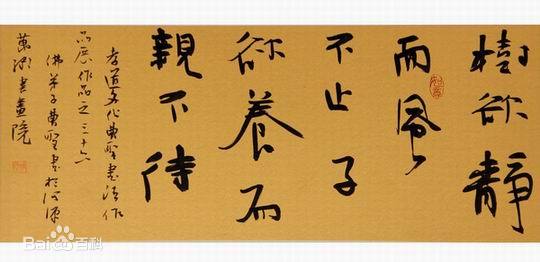 樹欲靜
而風
不止子
欲養而
親不待
孝道文化聖書法作
品展作品之三十六
佛弟子聖書於河源
萬湖書畫院
Baidu百科